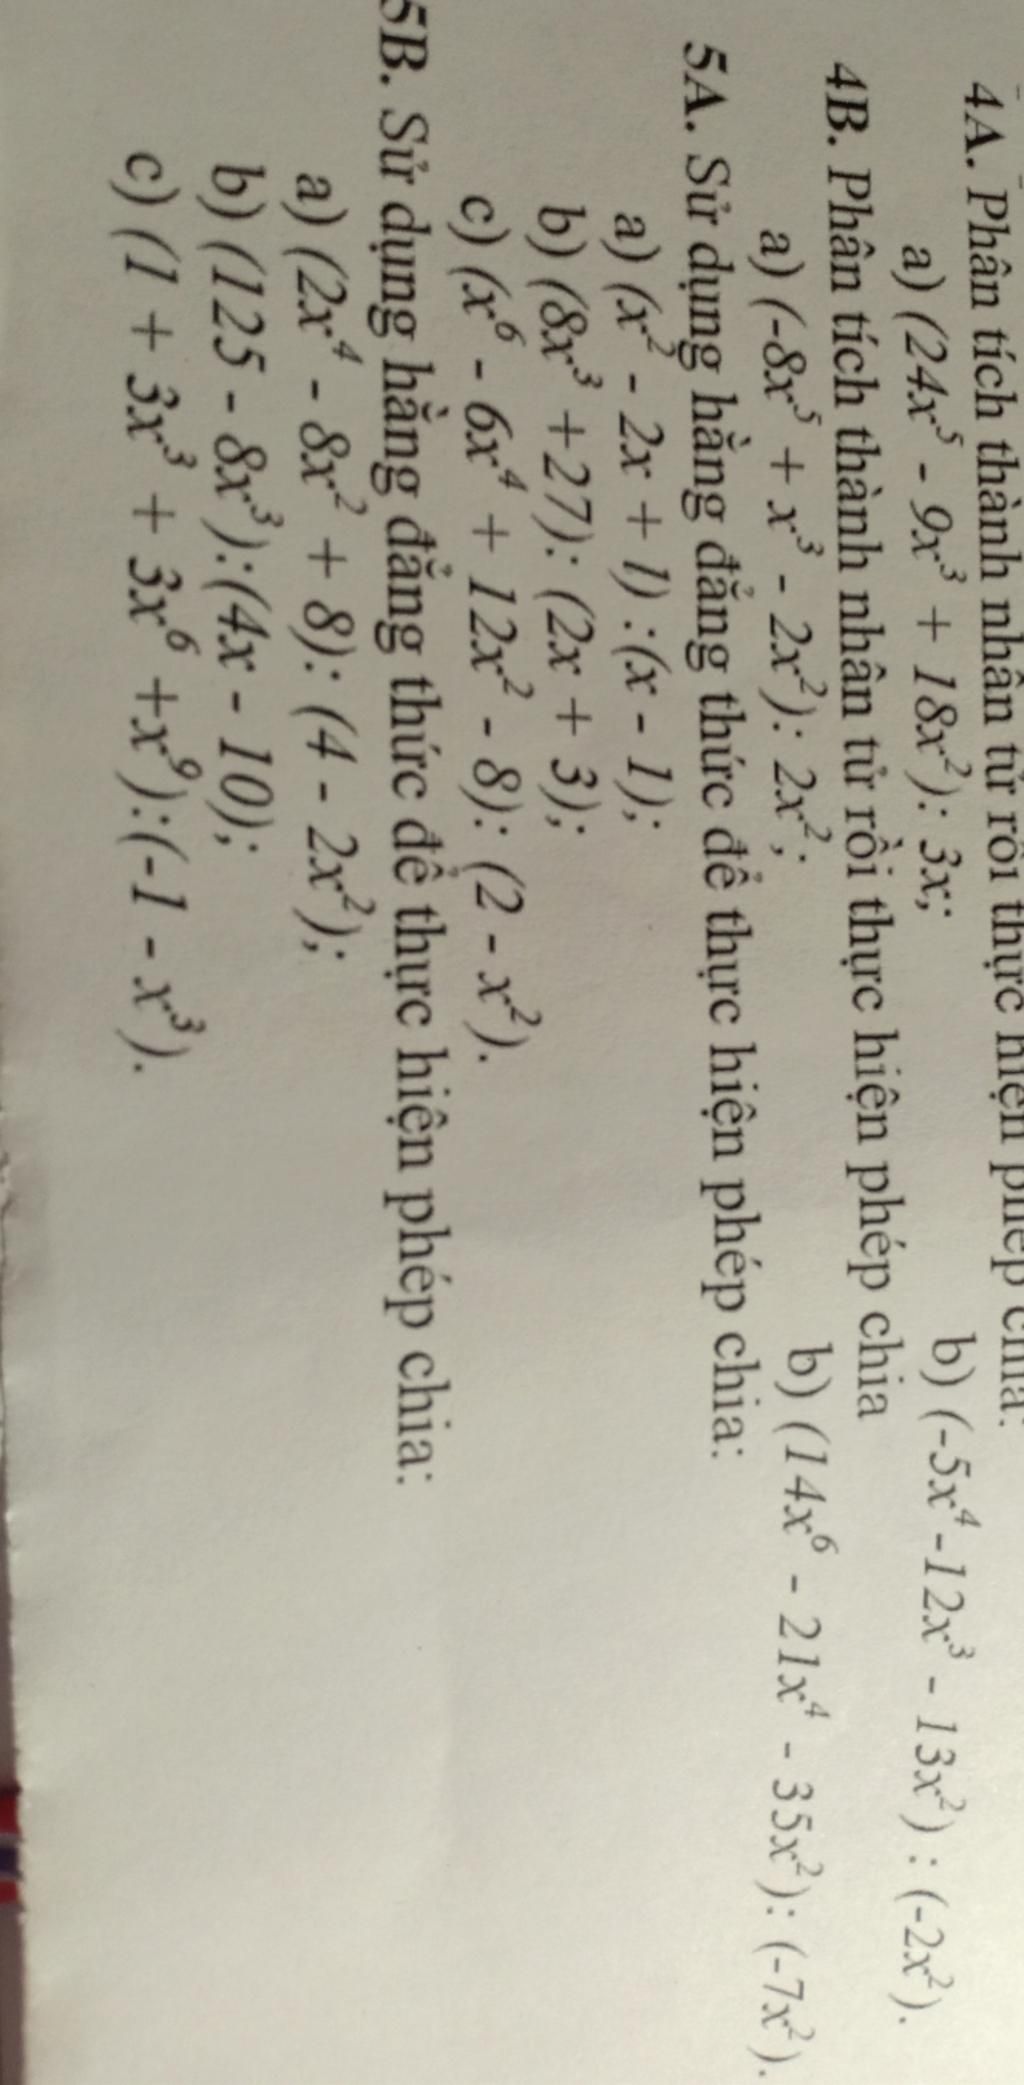 4A. Phân tích thành nhân tử rồi thực hiện phép chia:
a) (24x⁵ - 9x³ + 18x²): 3x; b) (-5x⁴ -12x³ - 13x²) : (-2x²).
4B. Phân tích thành nhân tử rồi thực hiện phép chia
a) (-8x⁵ + x³ - 2x²): 2x²; b) (14x⁶ - 21x⁴ - 35x²): (-7x²).
5A. Sử dụng hằng đẳng thức để thực hiện phép chia:
a) (x² - 2x + 1) :(x - 1);
b) (8x³ +27): (2x + 3);
c) (x⁶ - 6x⁴ + 12x² - 8): (2 - x²).
5B. Sử dụng hằng đẳng thức để thực hiện phép chia:
a) (2x⁴ - 8x² + 8): (4 - 2x²);
b) (125 - 8x³):(4x - 10);
c) (1 + 3x³ + 3x⁶ +x⁹):(-1 - x³).